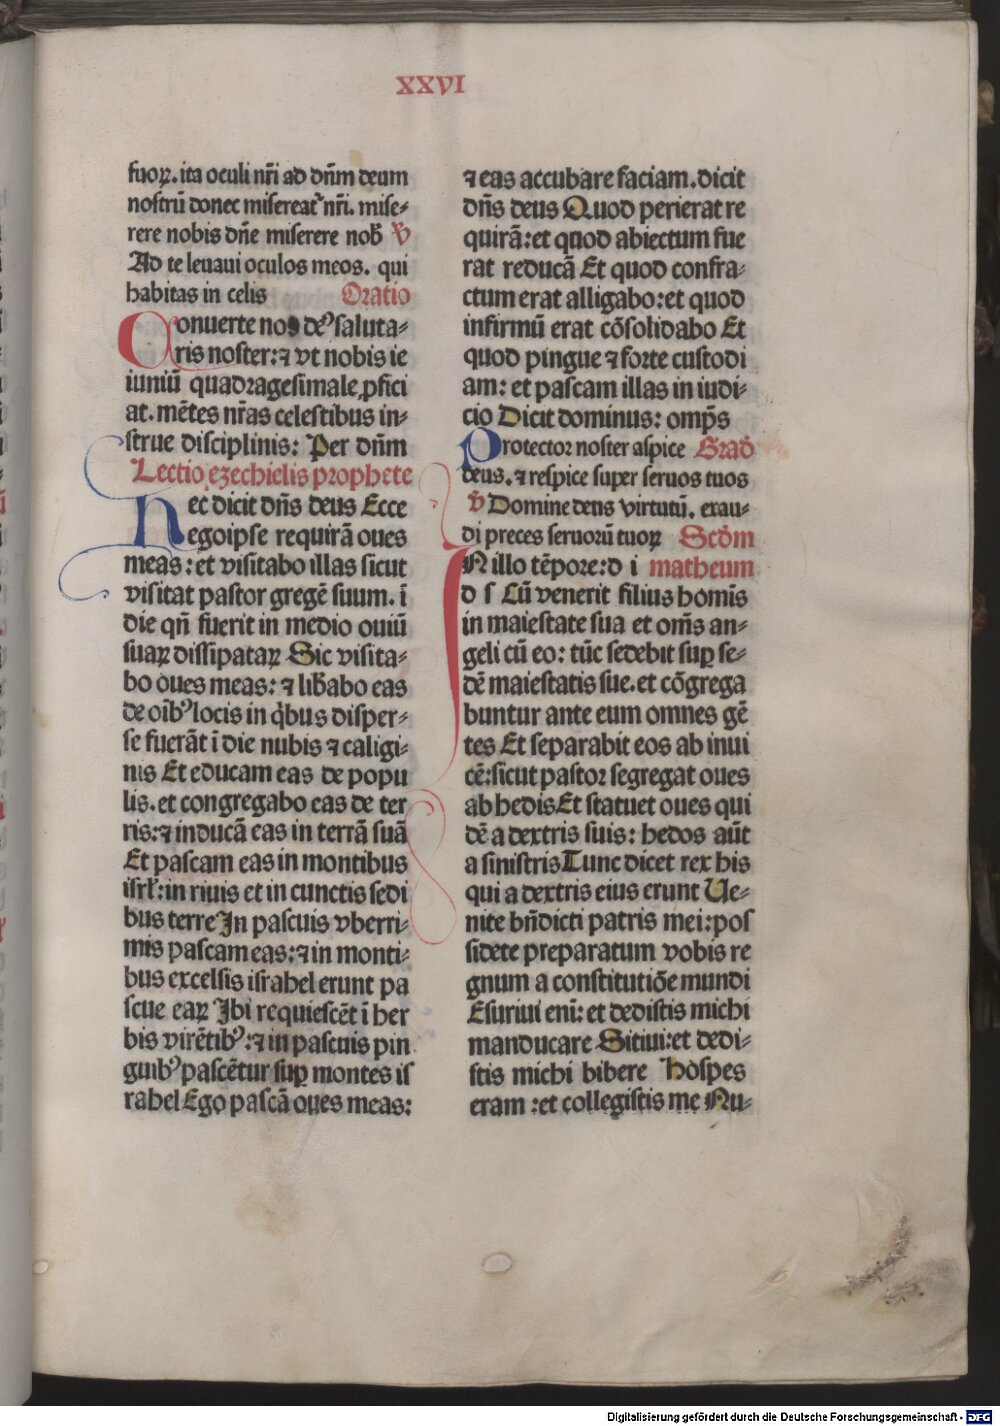 XXVI
suoꝝ. ita oculi nr̃i ad dñm deum
nostrũ donec misereat᷑ nr̃i. mise⸗
rere nobis dñe miserere nob̃ ꝟ
Ad te leuaui oculos meos. qui
habitas in celis Oratio
Conuerte nos deꝰ saluta⸗
ris noster: ⁊ vt nobis ie
iuniũ quadragesimale ꝓfici
at. mẽtes nr̃as celestibus in⸗
strue disciplinis: Per dñm
Lectio ezechielis prophete
Hec dicit dñs deus Ecce
egoipse requirã oues
meas: et visitabo illas sicut
visitat pastor gregẽ suum. ĩ
die qñ fuerit in medio ouiũ
suaꝝ dissipataꝝ Sic visita⸗
bo oues meas: ⁊ lib̃abo eas
de oĩbꝰ locis in q̇bus disper⸗
se fuerãt ĩ die nubis ⁊ caligi⸗
nis Et educam eas de popu
lis. et congregabo eas de ter
ris: ⁊ inducã eas in terrã suã
Et pascam eas in montibus
isrl̃: in riuis et in cunctis sedi
bus terre In pascuis vberri⸗
mis pascam eas: ⁊ in monti⸗
bus excelsis israhel erunt pa
scue eaꝝ Ibi requiescẽt ĩ her
bis virẽtibꝰ: ⁊ in pascuis pin
guibꝰ pascẽtur suꝑ montes is
rahel Ego pascã oues meas:
⁊ eas accubare faciam. dicit
dñs deus Quod perierat re
quirã: et quod abiectum fue
rat reducã Et quod confra⸗
ctum erat alligabo: et quod
infirmũ erat cõsolidabo Et
quod pingue ⁊ forte custodi
am: et pascam illas in iudi⸗
cio Dicit dominus: omp̃s
Protector noster aspice Grad̃
deus. ⁊ respice super seruos tuos
ꝟ Domine deus virtutũ. exau⸗
di preces seruorũ tuoꝝ Scd̃m
IN illo tẽpore: d i matheum
d s Cũ venerit filius homĩs
in maiestate sua et om̃s an⸗
geli cũ eo: tũc sedebit suꝑ se⸗
dẽ maiestatis sue. et cõgrega
buntur ante eum omnes gẽ
tes Et separabit eos ab inui
cẽ: sicut pastor segregat oues
ab hedis Et statuet oues qui
dẽ a dextris suis: hedos aũt
a sinistris Tunc dicet rex his
qui a dextris eius erunt Ue⸗
nite bñdicti patris mei: pos
sidete preparatum vobis re
gnum a constitutiõe mundi
Esuriui enĩ: et dedistis michi
manducare Sitiui: et dedi⸗
stis michi bibere Hospes
eram : et collegistis me Nu⸗
Digitalisierung gefördert durch die Deutsche Forschungsgemeinschaft - DFG